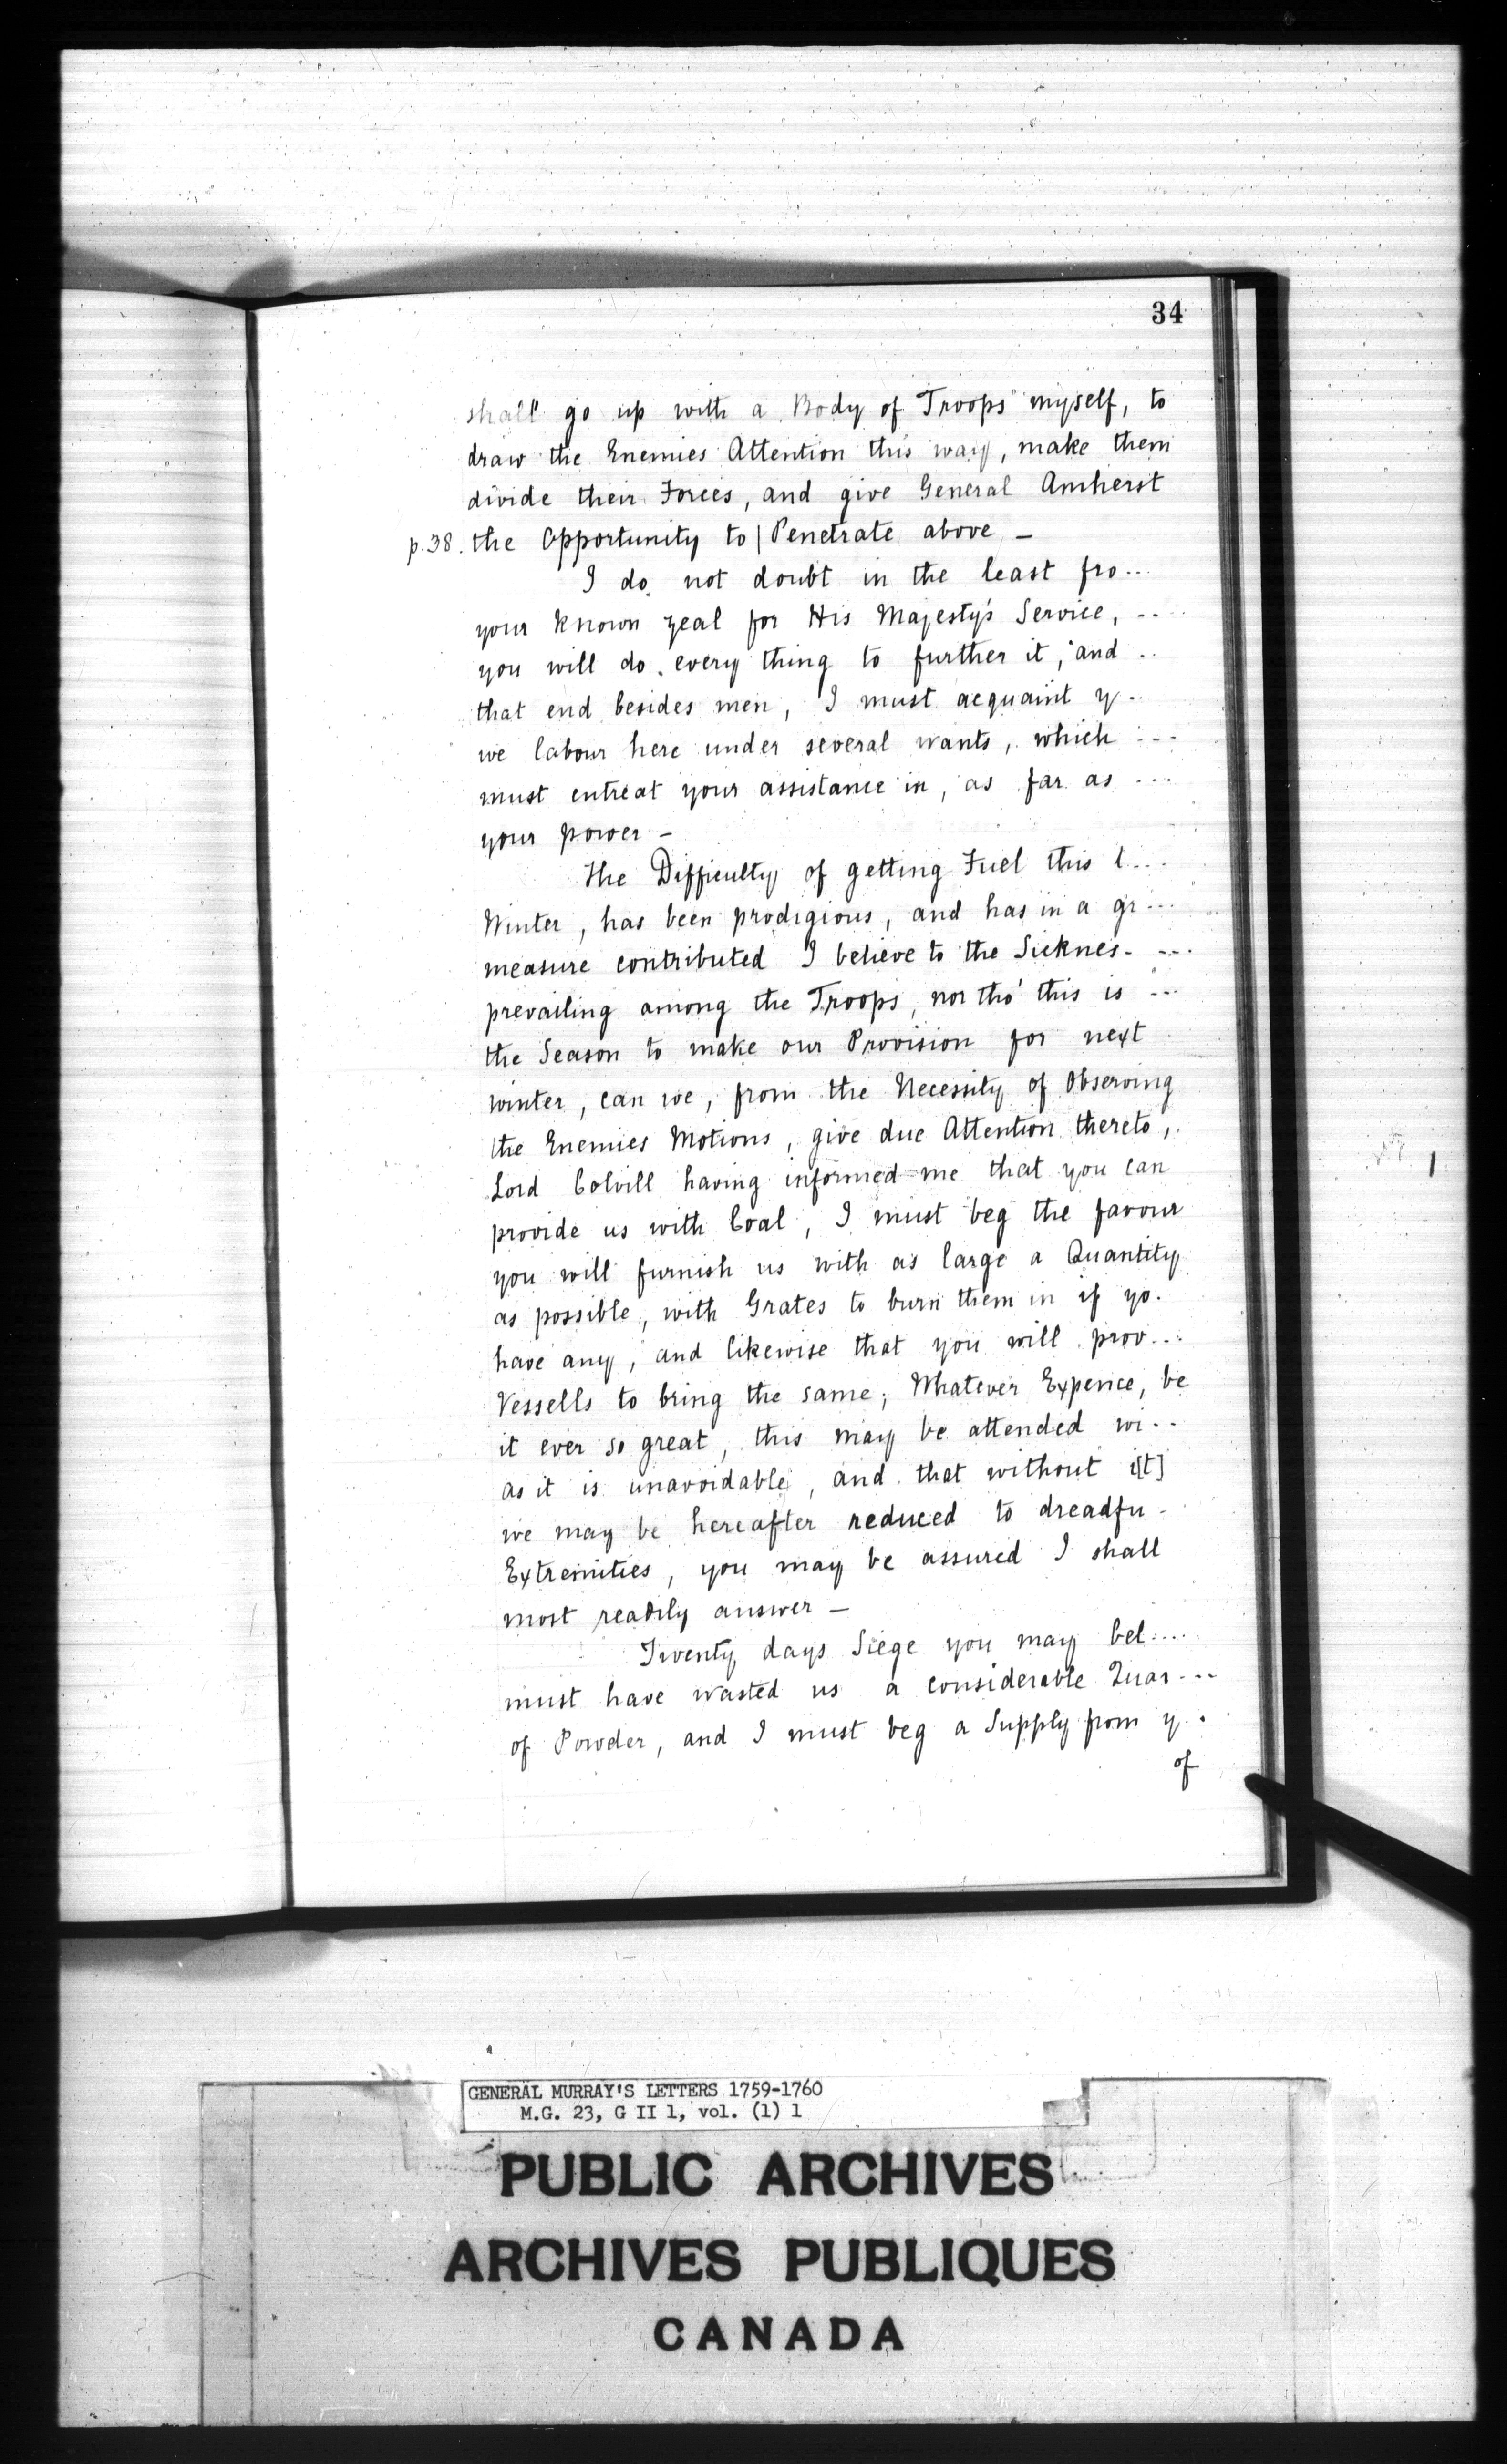 34
shall go up with a Body of Troops myself, to
draw the Enemies Attention this way, make them
divide their Forces, and give General Amherst
p. 38. the Opportunity to | Penetrate above —
I do not doubt in the least fro...
your known zeal for His Majesty's Service, ....
you will do every thing to further it, and ..
that end besides men, I must acquaint y..
we labour here under several wants, which ...
must entreat your assistance in, as far as ...
your power —
The Difficulty of getting Fuel this l...
Winter, has been prodigious, and has in a gr...
measure contributed I believe to the Sicknes- ...
prevailing among the Troops, nor tho' this is ...
the Season to make our Provision for next
winter, can we, from the Necessity of Observing
the Enemies Motions, give due Attention thereto,
Lord Colvill having informed me that you can
provide us with Coal, I must beg the favour
you will furnish us with as large a Quantity
as possible, with Grates to burn them in if yo.
have any, and likewise that you will prov...
Vessells to bring the same; Whatever Expence, be
it ever so great, this may be attended wi..
as it is unavoidable, and that without i[t]
we may be hereafter reduced to dreadfu-
Extremities, you may be assured I shall
most readily answer —
Twenty days Siege you may bel....
must have wasted us a considerable Quan...
of Powder, and I must beg a Supply from y..
of
GENERAL MURRAY'S LETTERS 1759-1760
M.G. 23, G II 1, vol. (1) 1
PUBLIC ARCHIVES
ARCHIVES PUBLIQUES
CANADA